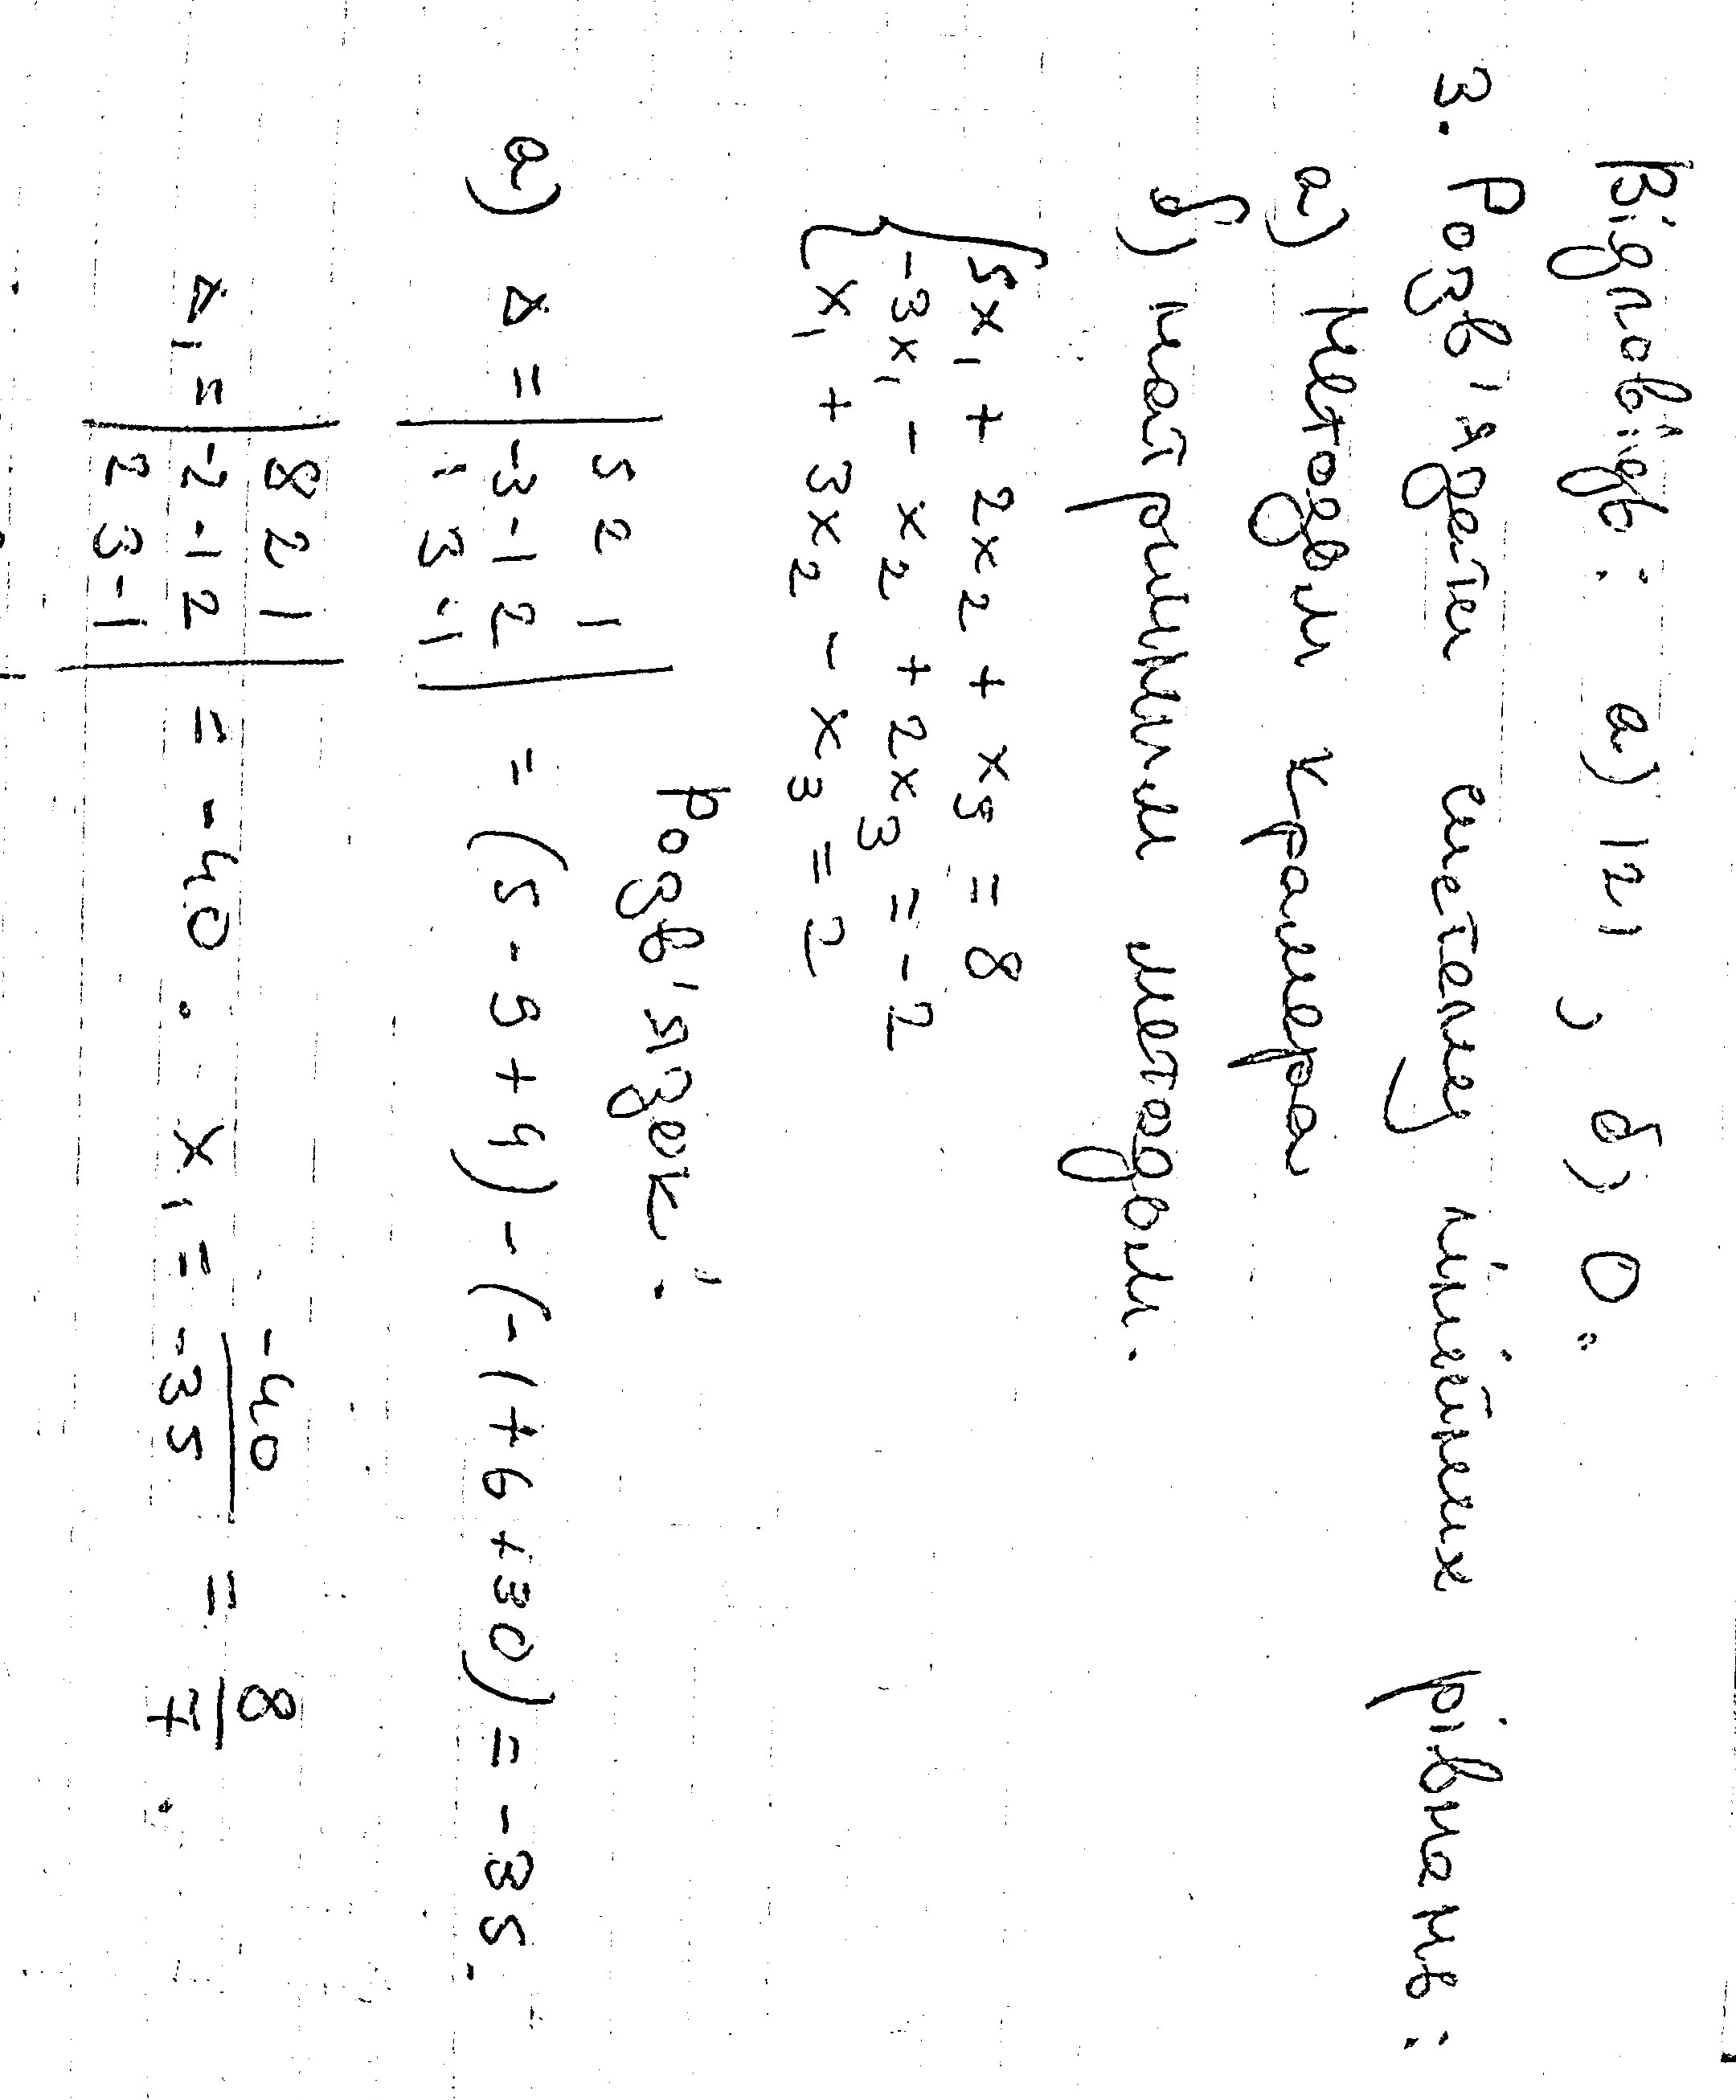 Відповідь: а) 121, б) 0.
3. Розв'язати систему лінійних рівнянь:
а) методом Крамера
б) матричним методом.
5x₁ + 2x₂ + x₃ = 8
-3x₁ - x₂ + 2x₃ = -2
x₁ + 3x₂ - x₃ = 2
Розв'язок:
а) Δ = | 5 2 1
-3 -1 2
1 3 -1 | = (5 - 9 + 4) - (-1 + 6 + 30) = -35.
Δ₁ = | 8 2 1
-2 -1 2
2 3 -1 | = -40. x₁ = -40/-35 = 8/7.